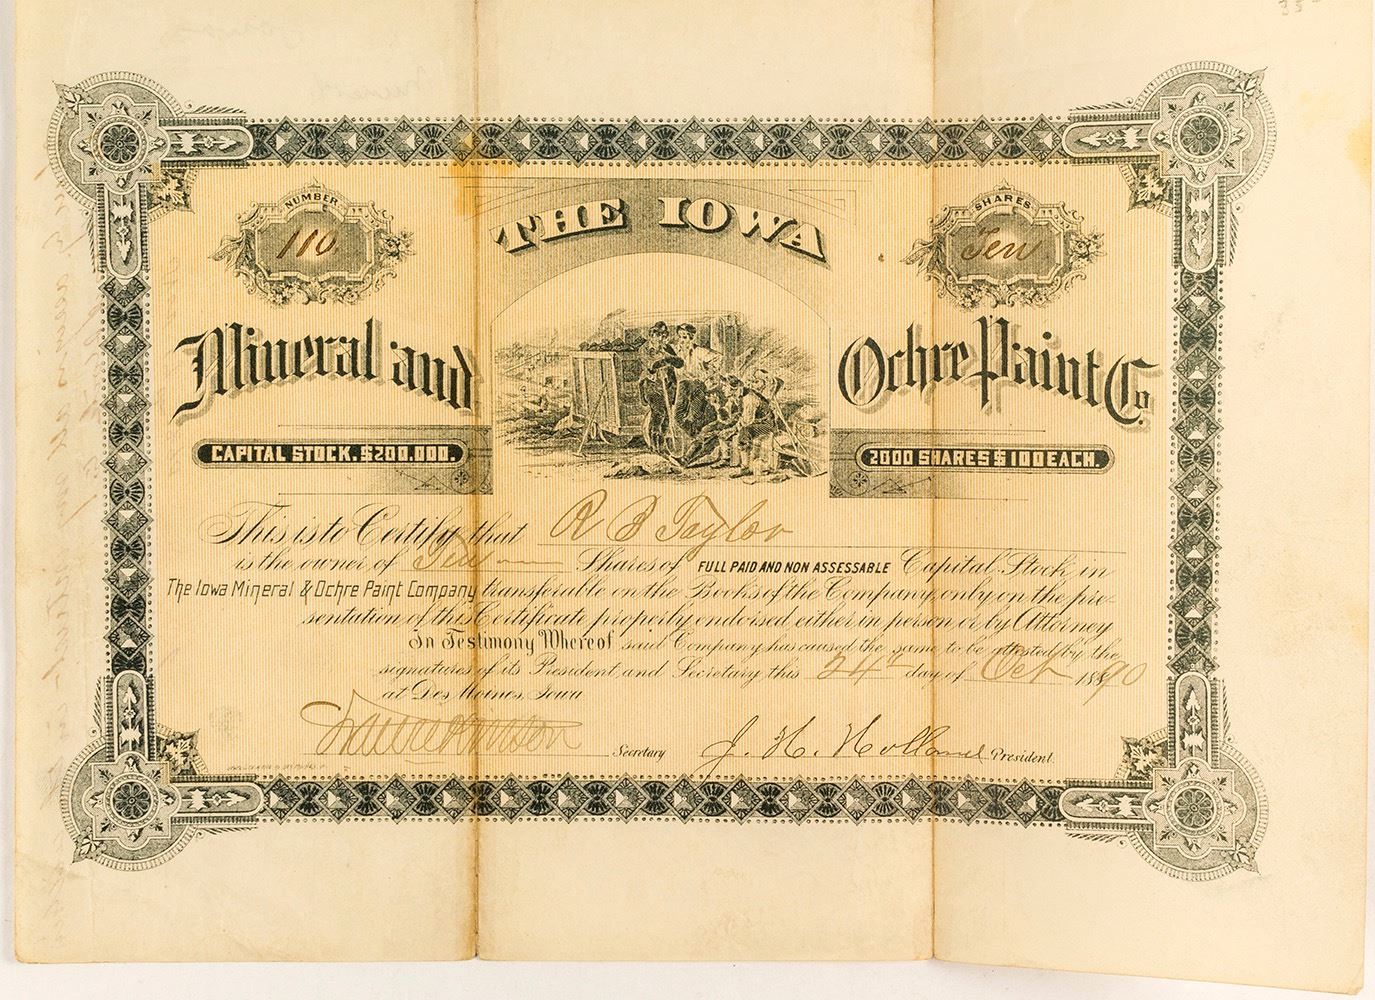 NUMBER
110
SHARES
Ten
THE IOWA
Mineral and Ochre Paint Co.
CAPITAL STOCK. $200,000.
2000 SHARES $100 EACH.
This is to Certify that R B Taylor
is the owner of Ten Shares of FULL PAID AND NON ASSESSABLE Capital Stock in
The Iowa Mineral & Ochre Paint Company transferable on the Books of the Company only on the pre-
sentation of this Certificate properly endorsed either in person or by Attorney
In Testimony Whereof said Company has caused the same to be attested by the
signatures of its President and Secretary this 24th day of Oct 1890
at Des Moines, Iowa
Secretary J. H. Holland President.